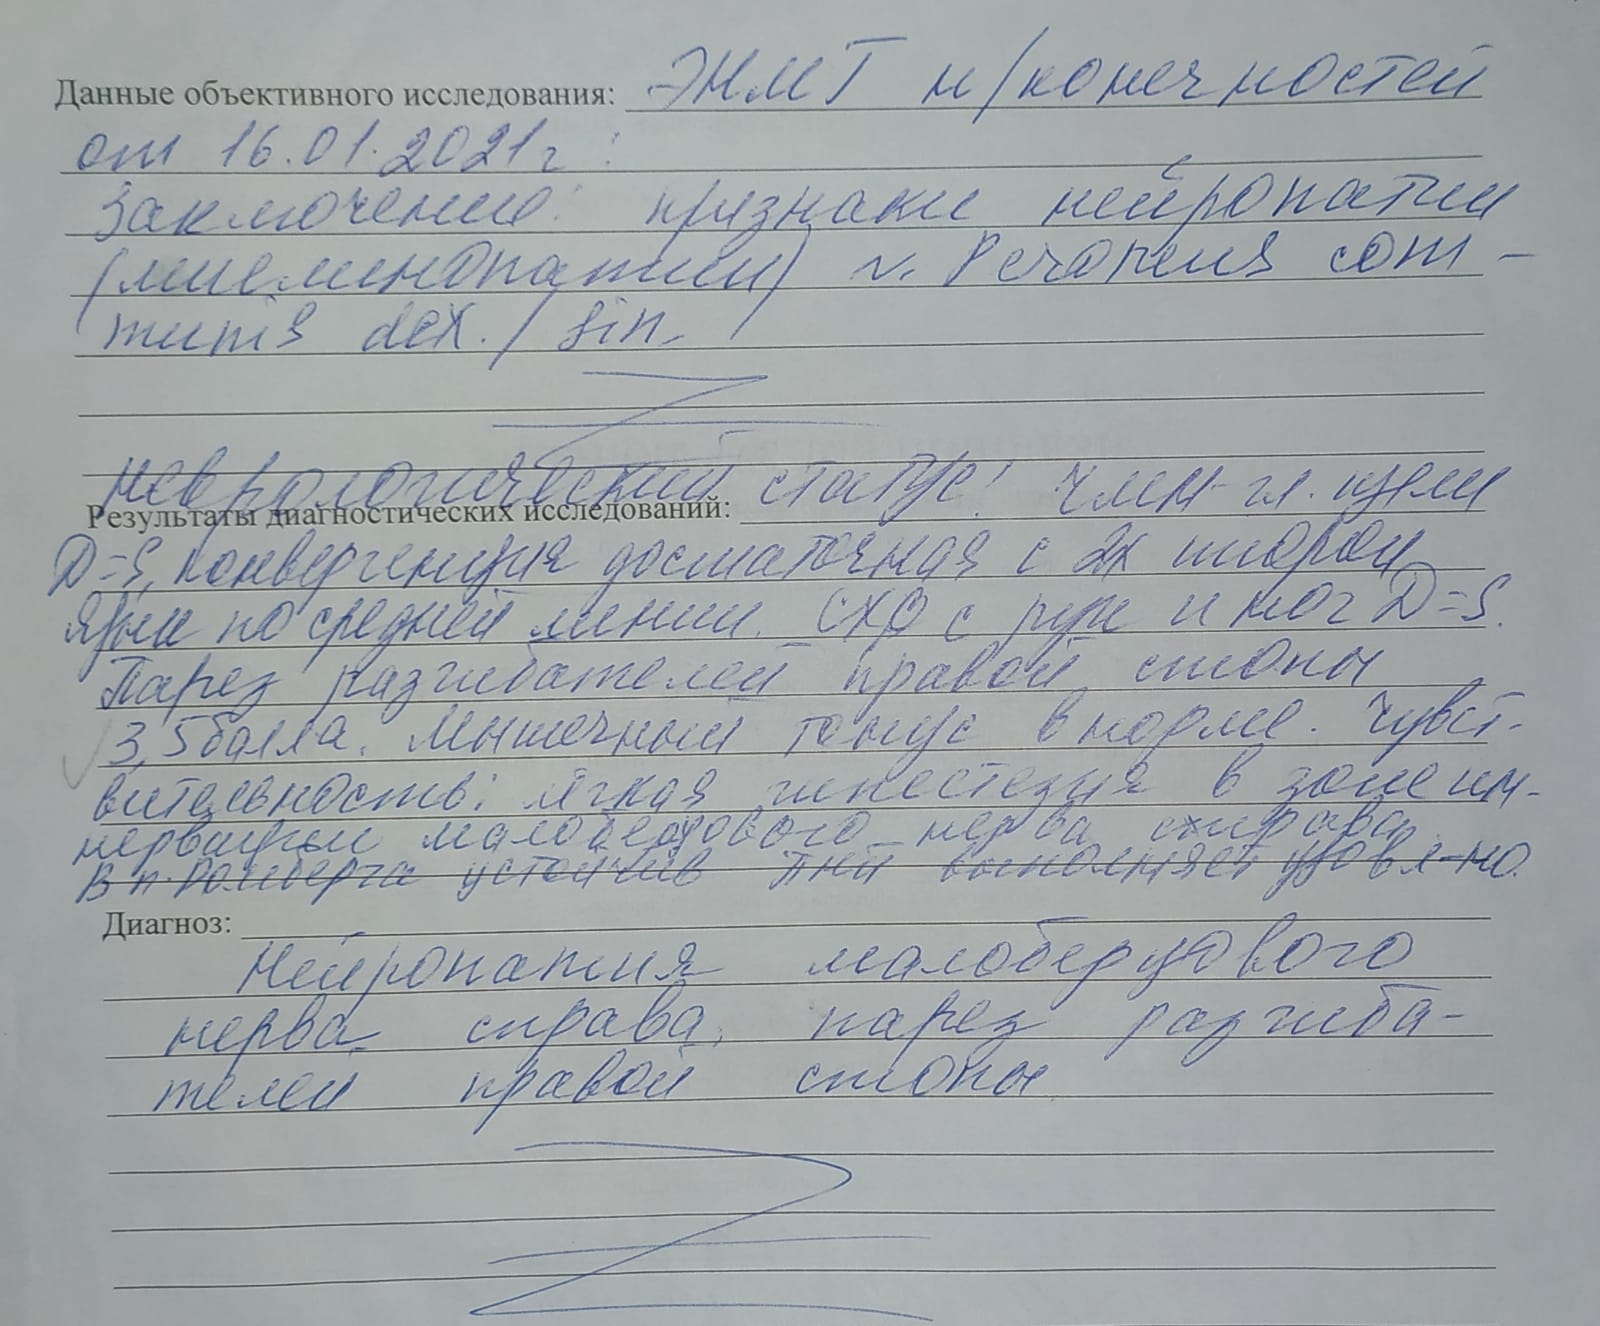 Данные объективного исследования: ЭНМГ н/конечностей
от 16.01.2021г:
Заключение: признаки нейропатии
(миелинопатии) n. Peroneus com-
munis dex. / sin.
Неврологический статус: ЧМН- гл. щели
Результаты диагностических исследований:
D=S, конвергенция достаточная с 2х сторон
язык по средней линии. СХР с рук и ног D=S.
Парез разгибателей правой стопы
3,5 балла. Мышечный тонус в норме. Чувст-
вительность: легкая гипестезия в зоне ин-
нервации малоберцового нерва справа.
В п. Ромберга устойчив ПНП выполняет удовл-но.
Диагноз:
Нейропатия малоберцового
нерва справа, парез разгиба-
телей правой стопы